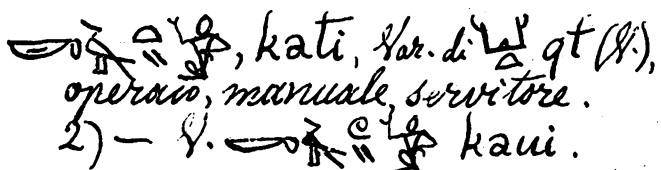 , kati, Var. di qt (V.),
operaio, manuale, servitore.
2) — V. kaui.